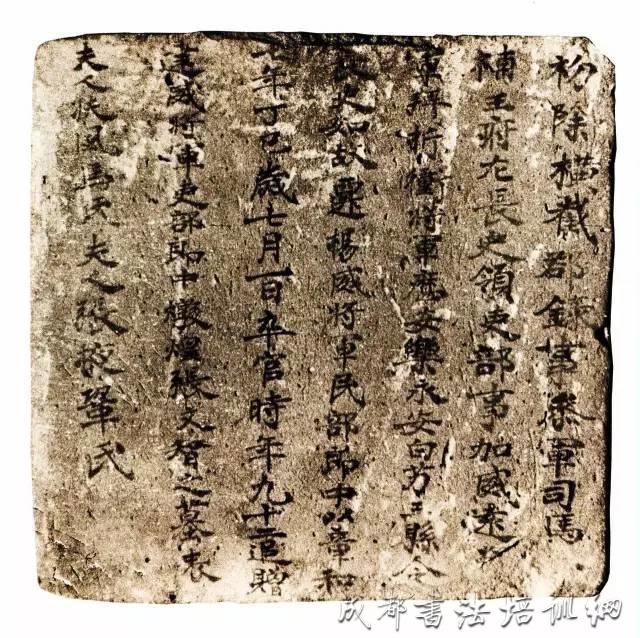 初除橫截郡錄事參軍司馬
補王府左長史領吏部事加威遠將
軍拜折衝將軍安樂永安白艻三縣令
長史如故遷楊威將軍民部郎中以章和
七年丁巳歲七月一日卒官時年九十二追贈
建威將軍吏部郎中燉煌張文智之墓表
夫人扶風馬氏夫人張掖鞏氏
成都书法培训网